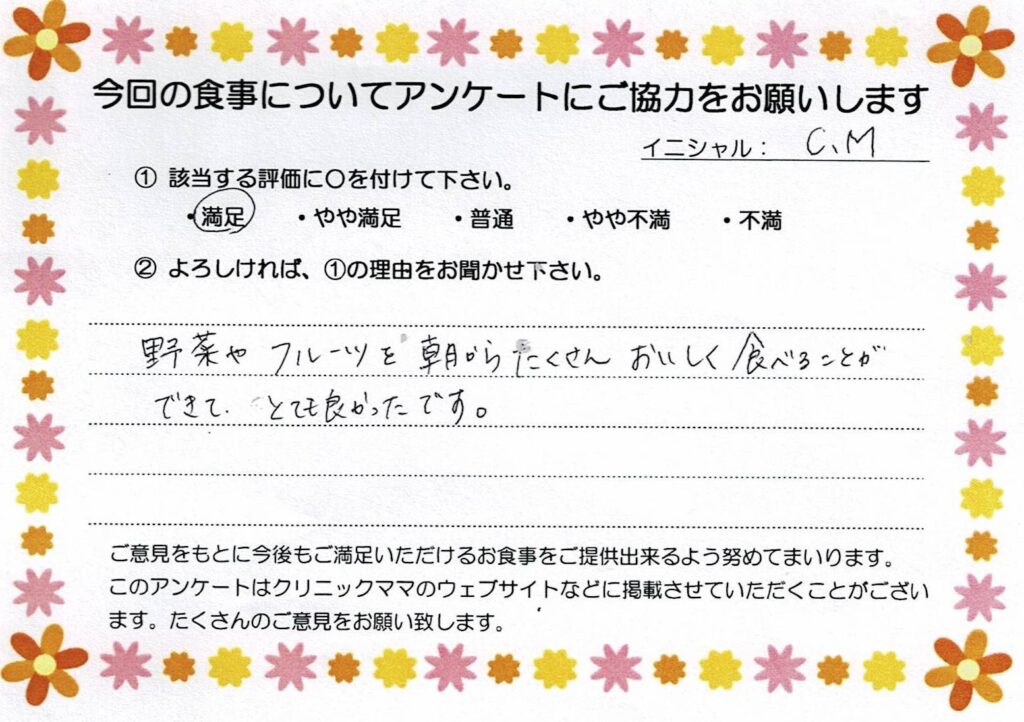 今回の食事についてアンケートにご協力をお願いします
イニシャル： C、M
① 該当する評価に〇を付けて下さい。
・満足 ・やや満足 ・普通 ・やや不満 ・不満
② よろしければ、①の理由をお聞かせ下さい。
野菜や フルーツを 朝から たくさん おいしく 食べることが
できて、とても良かったです。
ご意見をもとに今後もご満足いただけるお食事をご提供出来るよう努めてまいります。
このアンケートはクリニックママのウェブサイトなどに掲載させていただくことがござい
ます。たくさんのご意見をお願い致します。